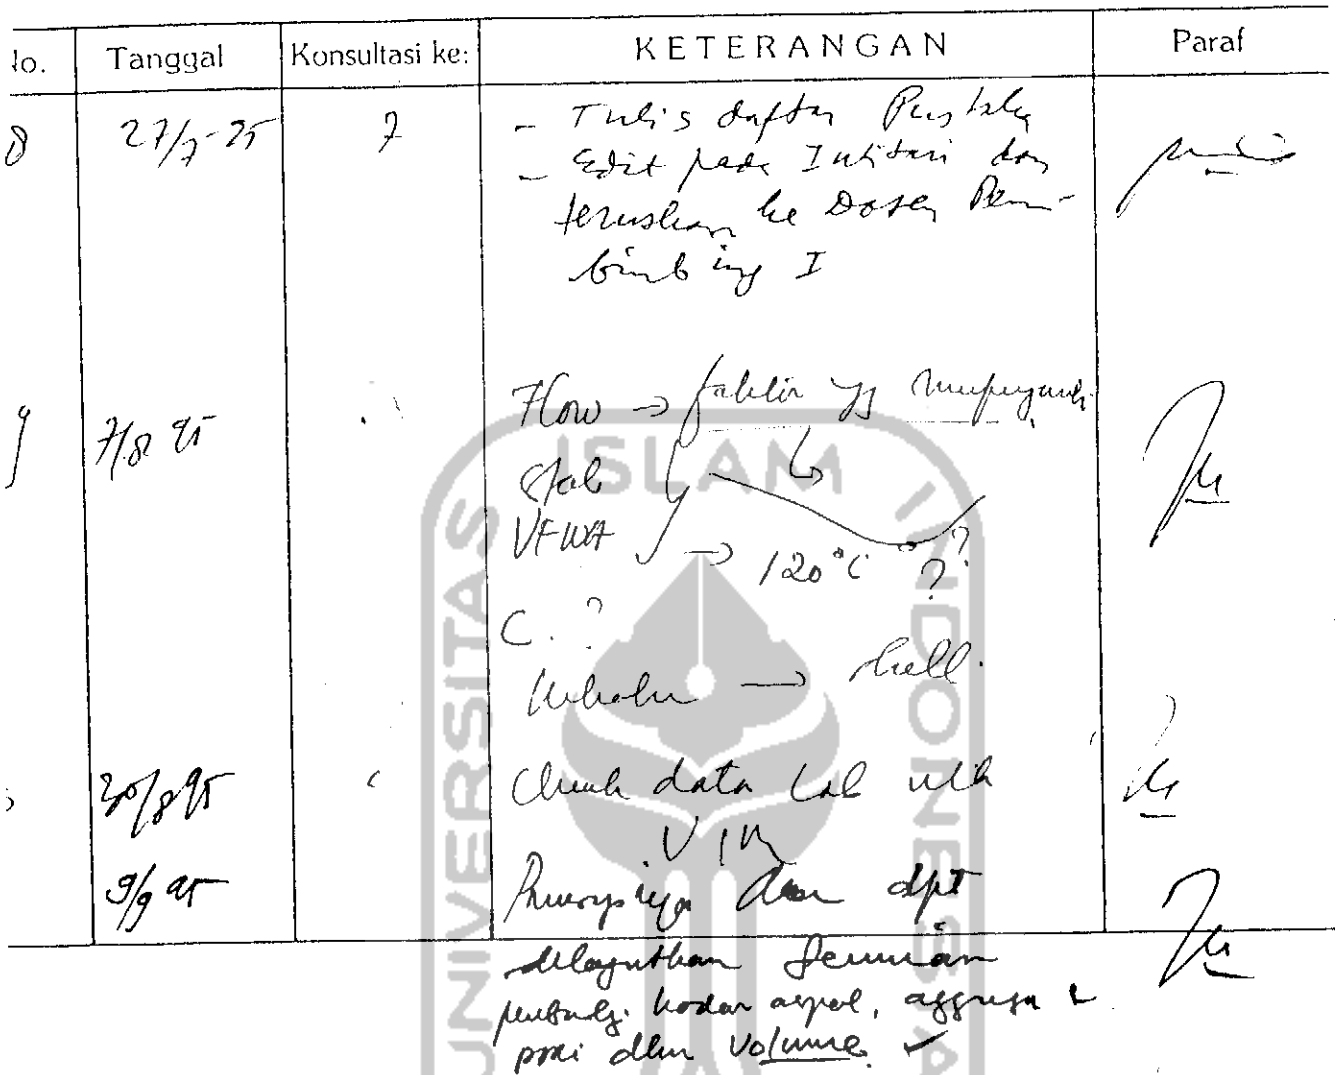 No. Tanggal Konsultasi ke: KETERANGAN Paraf
8 27/7-95 7 - Tulis daftar Pustaka
- Edit pada Intisari dan
teruskan ke Dosen Pem-
bimbing I
9 7/8 95 Flow → faktor yg mempengaruhi
Stab
VFWA → 120°C ? ?
C. ?
→ Shell.
30/8 95 Check data Lab utk
VIM
9/9 95 dan dpt
dilanjutkan Seminar
kadar aspal, aggregat &
pori dlm Volume ✓
UNIVERSITAS ISLAM INDONESIA